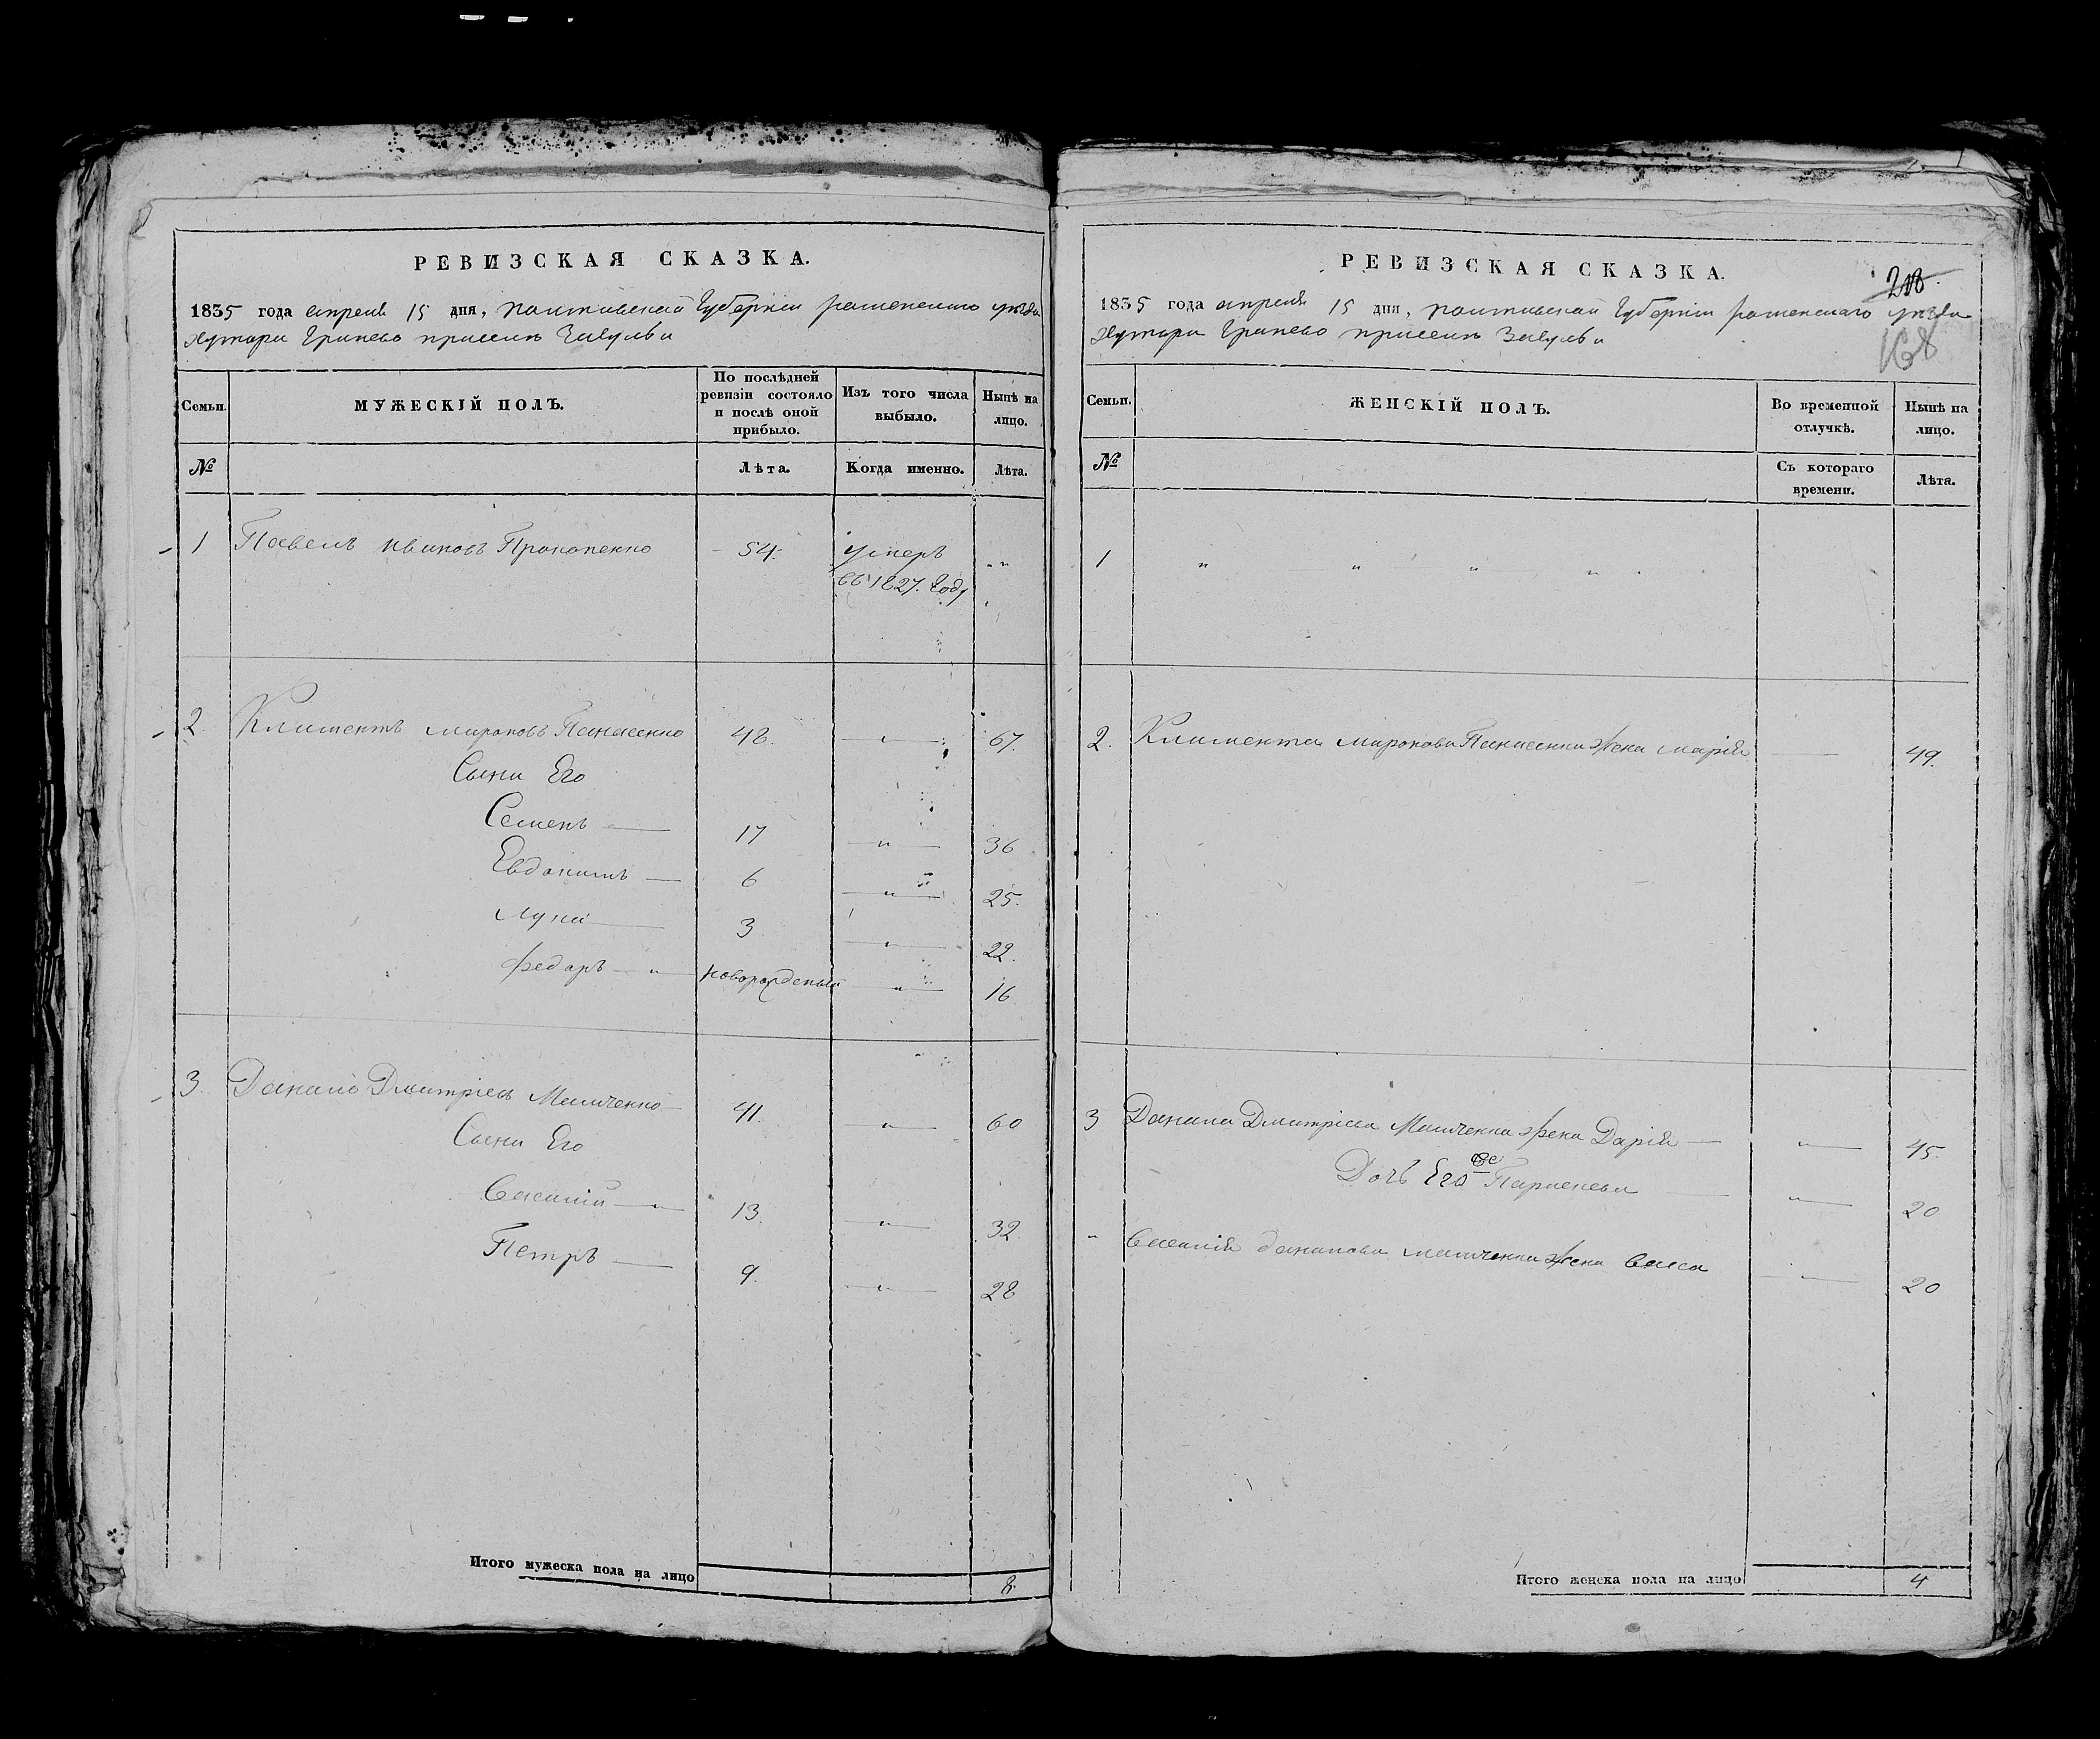 РЕВИЗСКАЯ СКАЗКА.
1835 года апреля 15 дня, полтавской Губернии роменского уезда
хутора
Семьи. МУЖЕСКІЙ ПОЛЪ. По послѣдней ревизіи состояло и послѣ оной прибыло. Изъ того числа выбыло. Нынѣ на лицо.
№ Лѣта. Когда именно. Лѣта.
1 Павелъ Ивановъ Прокопенко 54. умеръ " "
въ 1827. году
2. Климентъ мироновъ Панасенко 48. — " — 67.
Сыни Его
Семенъ — 17 — " — 36
Евдокимъ — 6 — " — 25.
Лука — 3 — " — 22.
Федоръ — " — новорожденый — " — 16
3. Данило Дмитріевъ — 41. — " — 60
Сыни Его
Василій — " — 13. — " — 32
Петръ — 9. — " — 28
Итого мужеска пола на лицо 8.
РЕВИЗСКАЯ СКАЗКА.
218.
1835 года апреля 15 дня, полтавской Губерніи роменскаго уезда
хутора
168
Семьи. ЖЕНСКІЙ ПОЛЪ. Во временной отлучкѣ. Нынѣ на лицо.
№ Съ котораго времени. Лѣта.
1 " " " "
2. Климента миронова Панасенка жена марія — 49.
3 Данила Дмитріева жена Дарія — " — 45.
Дочь Его — " — 20
" Василія данилова жена — " — 20
Итого женска пола на лицо 4